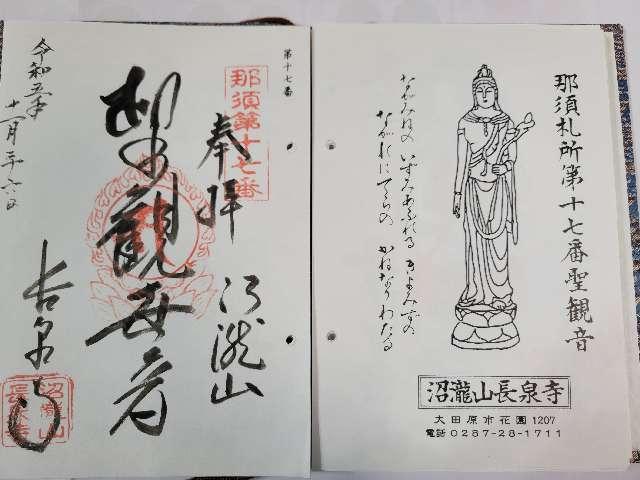 第十七番
那須第十七番
奉拝
沼瀧山
聖観世音
長泉寺
令和五年
十一月二十六日
沼瀧山
長泉寺
那須札所第十七番聖観音
いずみあふれる きよみずの
ながれにてらの かねなりわたる
沼瀧山長泉寺
大田原市花園1207
電話0287-28-1711